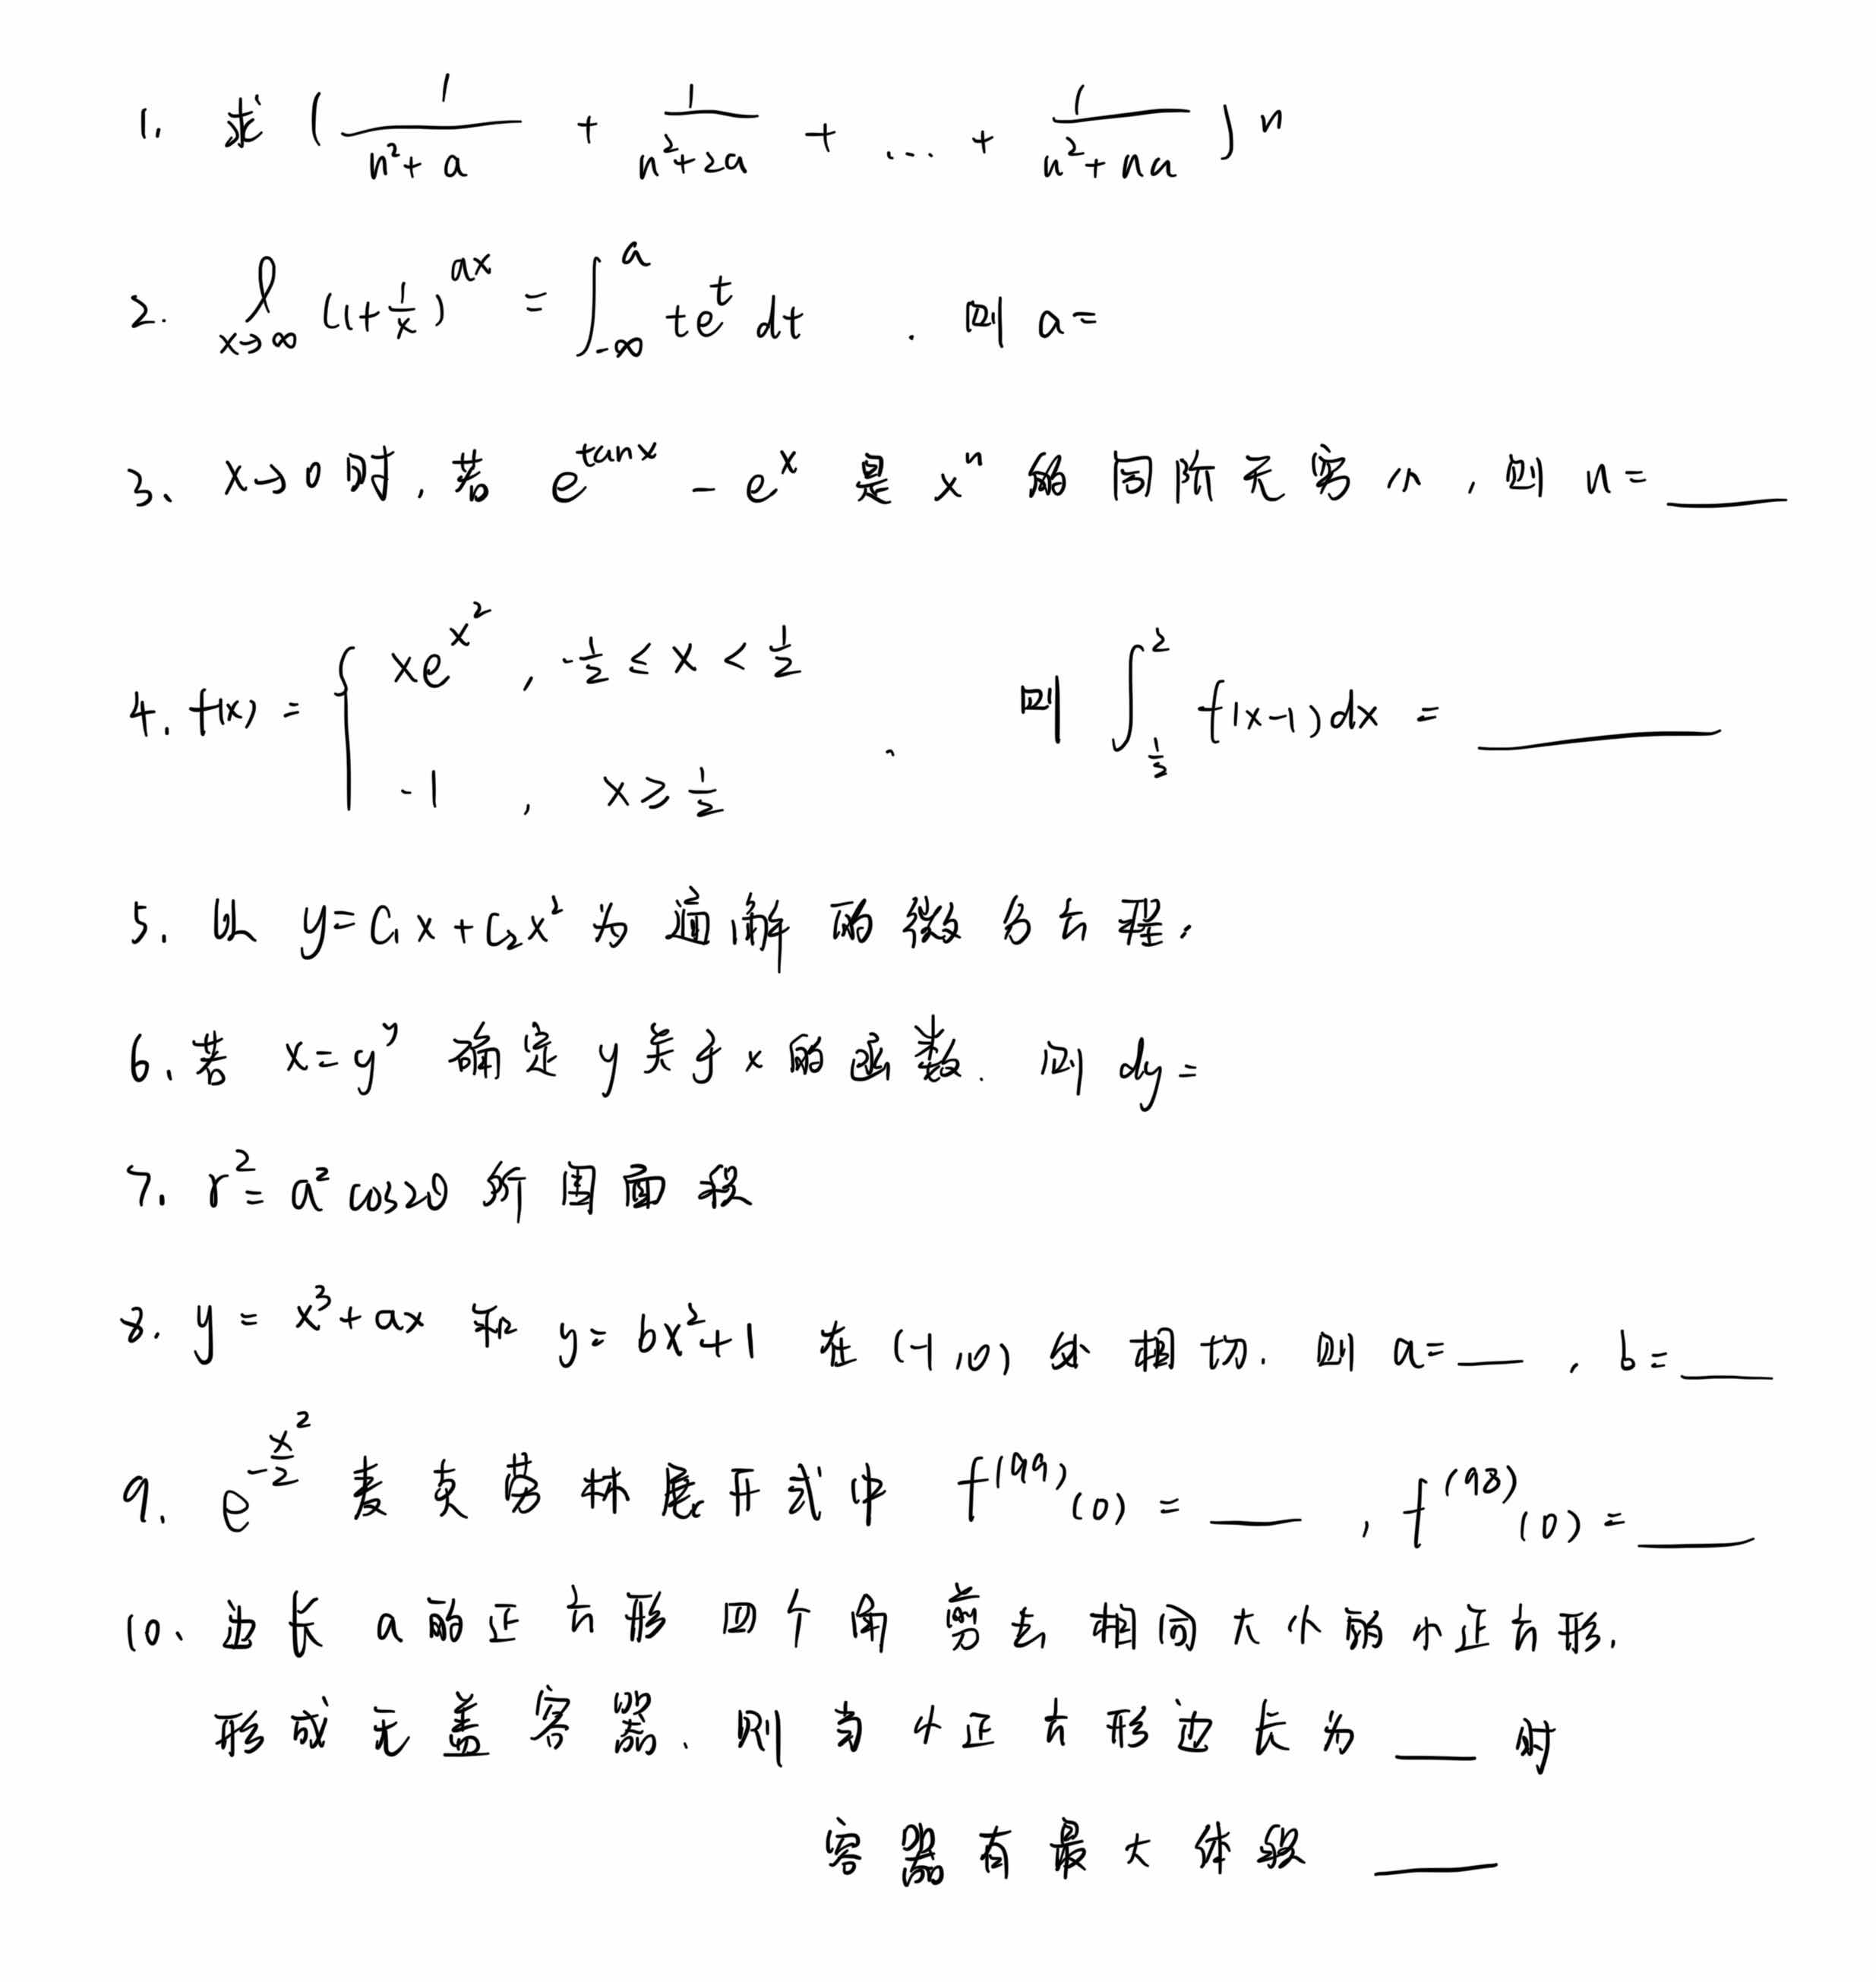 1. 求 (1/(n²+a) + 1/(n²+2a) + ... + 1/(n²+na)) n
2. l_{x→∞} (1+1/x)^{ax} = ∫_{-∞}^{a} te^t dt . 则 a=
3、 x→0时, 若 e^{tanx} - e^x 是 x^n 的同阶无穷小, 则 n= ____
4. f(x) = { xe^{x²} , -1/2 ≤ x < 1/2
-1 , x ≥ 1/2 . 则 ∫_{1/2}^{2} f(x-1)dx = ____
5. 以 y=C₁x+C₂x² 为通解的微分方程.
6、若 x=y^y 确定 y关于x的函数. 则 dy=
7. r²=a²cos2θ 所围面积
8. y = x³+ax 和 y=bx²+1 在 (-1,0) 处相切. 则 a=____ , b=____
9. e^{-x²/2} 麦克劳林展开式中 f^{(99)}(0) = ____ , f^{(98)}(0) = ____
10、边长a的正方形四个角剪去相同大小的小正方形.
形成无盖容器. 则当小正方形边长为 ____ 时
容器有最大体积 ____